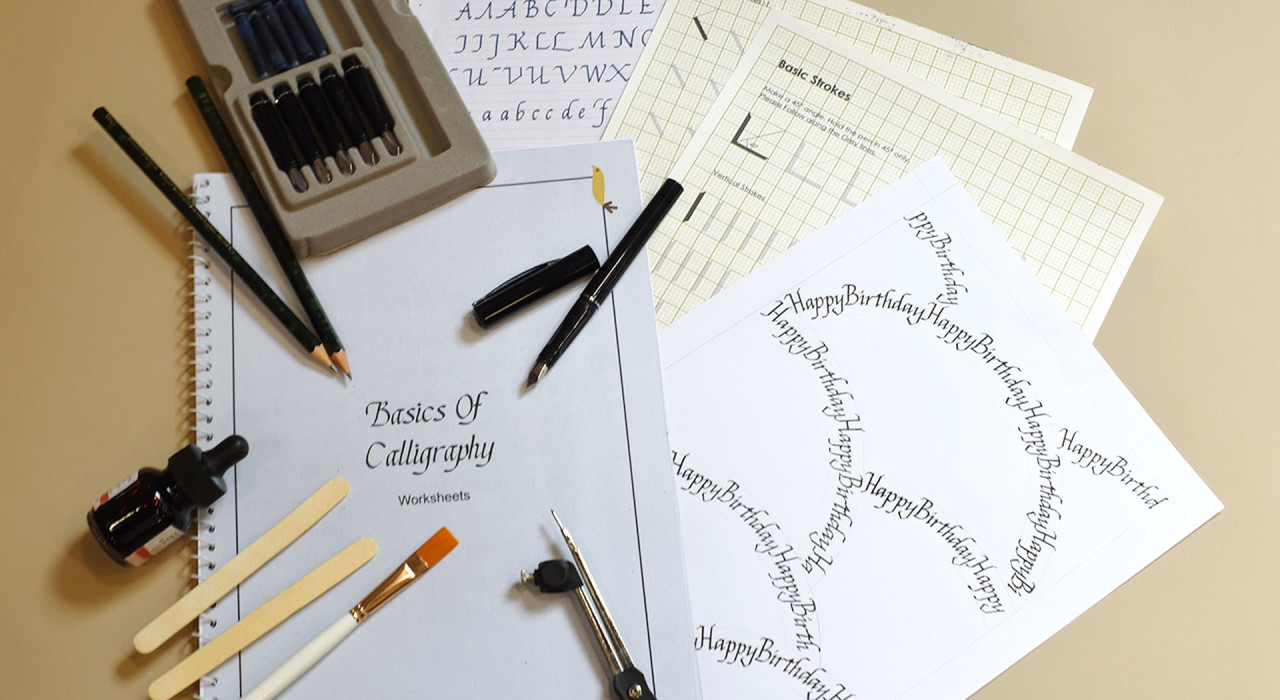 A A A B C D D L E
I I J K L L M N
U U V U V W X
a a b c c d e f
Basic Strokes
Make a 45° angle. Hold the pen in 45° only.
Please Follow along the Grey lines.
45°
Vertical Strokes
Basics Of
Calligraphy
Worksheets
ppyBirthday
HappyBirthdayHappyBirthdayHappyBirthdayHappybi
HappyBirthdayHappyBirthdayHa
HappyBirthd
HappyBirthdayHappy
HappyBirthdayHappyBirth
HappyBirthdayHa